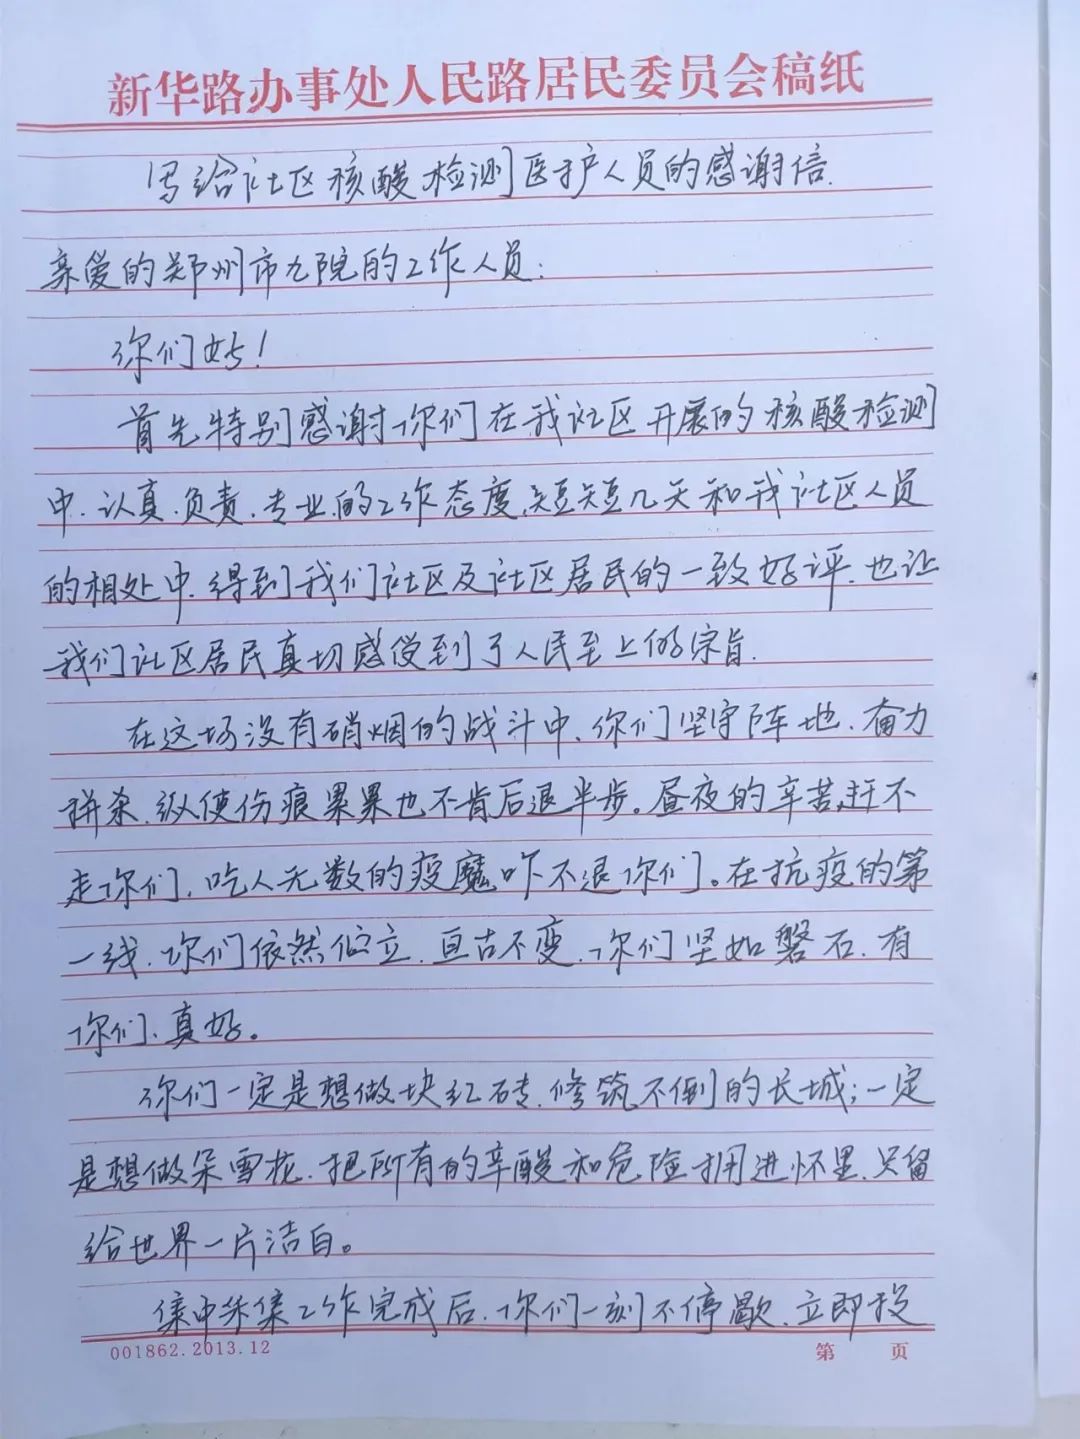 新华路办事处人民路居民委员会稿纸
写给社区核酸检测医护人员的感谢信.
亲爱的郑州市九院的工作人员:
你们好!
首先特别感谢你们在我社区开展的核酸检测
中.认真.负责.专业的工作态度,短短几天和我社区人员
的相处中.得到我们社区及社区居民的一致好评.也让
我们社区居民真切感受到了人民至上的宗旨.
在这场没有硝烟的战斗中、你们坚守阵地.奋力
拼杀.纵使伤痕累累也不肯后退半步。昼夜的辛苦,赶不
走你们,吃人无数的疫魔吓不退你们。在抗疫的第
一线.你们依然伫立.亘古不变.你们坚如磐石.有
你们、真好。
你们一定是想做块红砖.修筑不倒的长城;一定
是想做朵雪花.把所有的辛酸和危险拥进怀里.只留
给世界一片洁白。
集中采集工作完成后.你们一刻不停歇.立即投
001862.2013.12
第 页